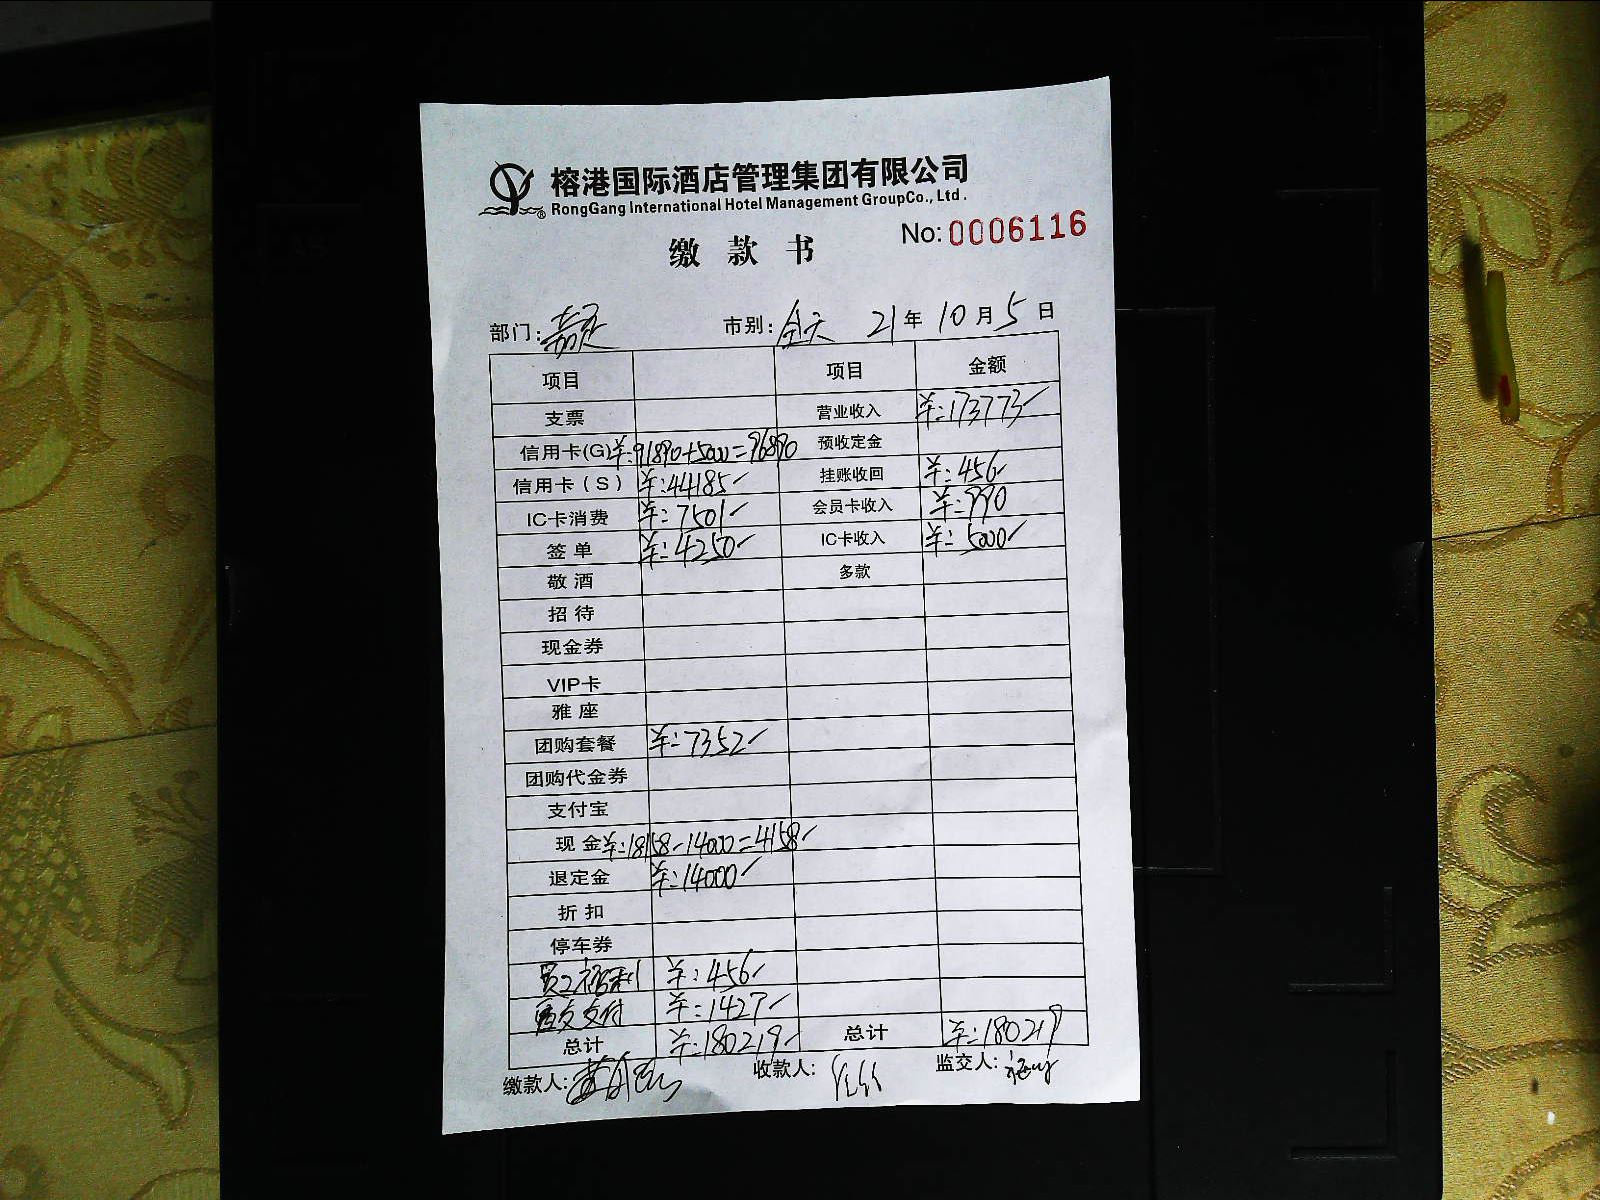 榕港国际酒店管理集团有限公司
® RongGang International Hotel Management GroupCo., Ltd.
No: 0006116
缴 款 书
部门: 嘉定 市别: 全天 21年 10月 5日
项目 项目 金额
支票 营业收入 ¥:173773
信用卡(G) ¥:91890+5000=96890 预收定金
信用卡(S) ¥:44185 挂账收回 ¥:456
IC卡消费 ¥:7501 会员卡收入 ¥:990
签 单 ¥:4250 IC卡收入 ¥:5000
敬 酒 多款
招 待
现金券
VIP卡
雅 座
团购套餐 ¥:7352
团购代金券
支付宝
现 金 ¥:18158-14000=4158
退定金 ¥:14000
折 扣
停车券
员工福利 ¥:456
支付 ¥:1427
总计 ¥:180219 总计 ¥:180219
缴款人: 收款人: 监交人: